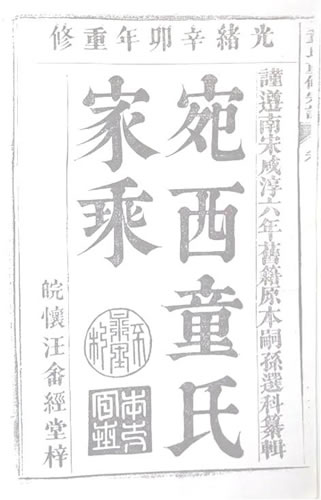 光緒辛卯年重修
謹遵南宋咸淳六年舊籍原本嗣孫選科纂輯
宛西童氏
家乘
皖懷汪畬經堂梓